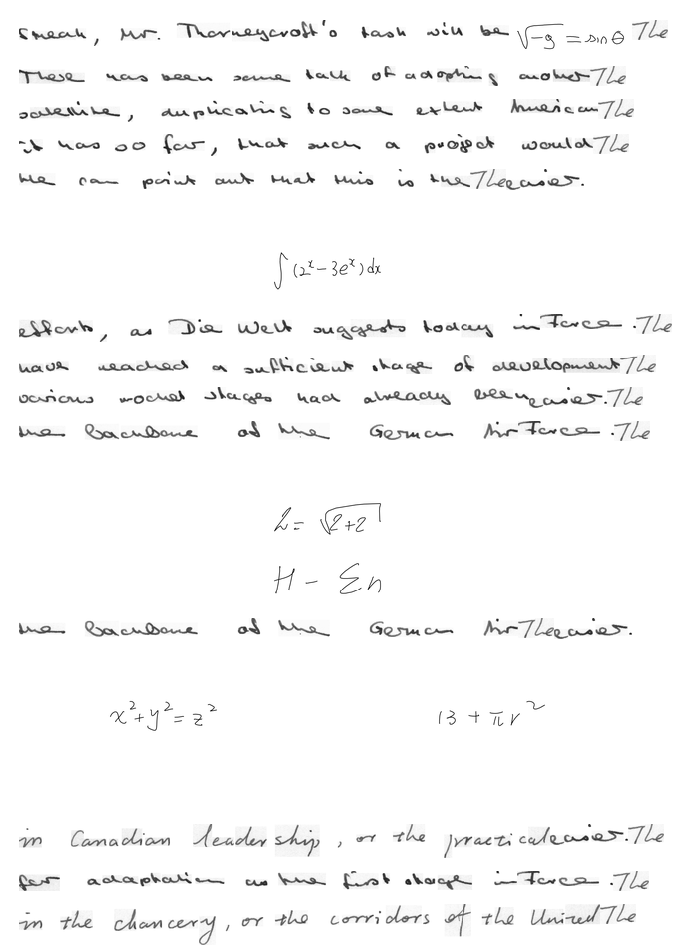 Streak, Mr. Thorneycroft's task will be √-g = sin θ The
There has been some talk of adopting another The
satellite, duplicating to some extent American The
it has so far, that such a project would The
He can point out that this is the The easier.
∫(2^x - 3e^x)dx
efforts, as Die Welt suggests today in Force . The
have reached a sufficient stage of development The
various rocket stages had already been easier. The
the backbone of the German Air Force . The
2 = √(2+2)
H - Σn
the backbone of the German Air The easier.
x²+y²=z² 13 + πr²
in Canadian leadership , or the practical easier. The
for adaptation as the first stage in Force . The
in the chancery, or the corridors of the United The